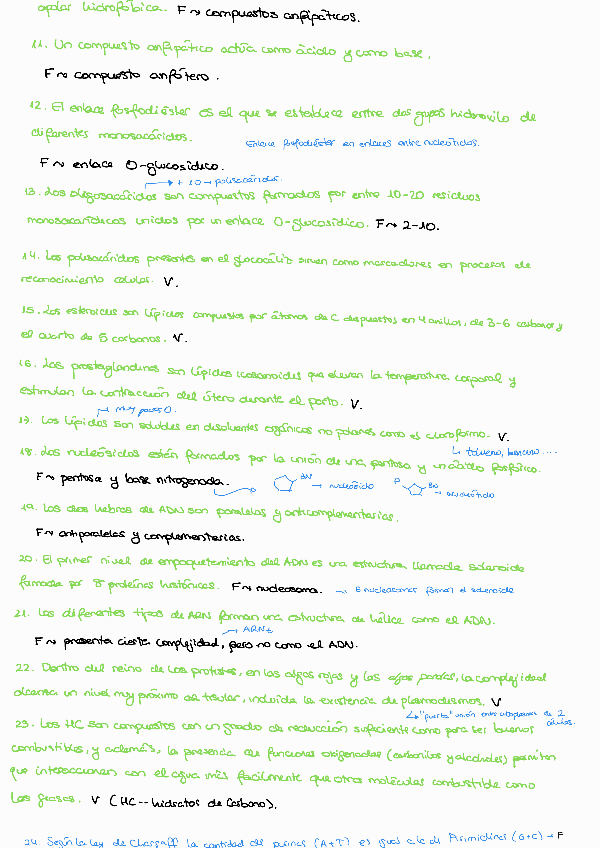 apolar hidrofóbica. F ~ compuestos anfipáticos.
11. Un compuesto anfipático actúa como ácido y como base.
F ~ compuesto anfótero.
12. El enlace fosfodiéster es el que se establece entre dos grupos hidroxilo de
diferentes monosacáridos.
Enlace fosfodiéster en enlaces entre nucleótidos.
F ~ enlace O-glucosídico.
+ 10 → polisacáridos.
13. Los oligosacáridos son compuestos formados por entre 10-20 residuos
monosacarídicos unidos por un enlace O-glucosídico. F ~ 2-10.
14. Los polisacáridos presentes en el glococáliz sirven como marcadores en procesos de
reconocimiento celular. V.
15. Los esteroides son lípidos compuestos por átomos de C dispuestos en 4 anillos, de 3-6 carbonos y
el cuarto de 5 carbonos. V.
16. Las prostaglandinas son lípidos icosanoides que elevan la temperatura corporal y
estimulan la contracción del útero durante el parto. V.
→ muy poco O.
17. Los lípidos son solubles en disolventes orgánicos no polares como el cloroformo. V.
↳ tolueno, benceno....
18. Los nucleósidos están formados por la unión de una pentosa y un ácido fosfórico.
F ~ pentosa y base nitrogenada. BN → nucleósido P BN → nucleótido
19. Las dos hebras de ADN son paralelas y anticomplementarias.
F ~ antiparalelas y complementarias.
20. El primer nivel de empaquetamiento del ADN es una estructura llamada solenoide
formada por 8 proteínas histónicas. F ~ nucleosoma. → 6 nucleosomas forman el solenoide
21. Los diferentes tipos de ARN forman una estructura de hélice como el ADN.
→ ARNt
F ~ presenta cierta complejidad, pero no como el ADN.
22. Dentro del reino de los protistas, en las algas rojas y las algas pardas, la complejidad
alcanza un nivel muy próximo al tisular, incluida la existencia de plasmodesmos. V
↳ "puerta" unión entre citoplasmas de 2 células.
23. Los HC son compuestos con un grado de reducción suficiente como para ser buenos
combustibles, y además, la presencia de funciones oxigenadas (carbonilos y alcoholes) permiten
que interaccionen con el agua más fácilmente que otras moléculas combustible como
las grasas. V (HC -- hidratos de Carbono).
24. Según la ley de Chargaff la cantidad de purinas (A+T) es igual a la de Pirimidinas (G+C) → F